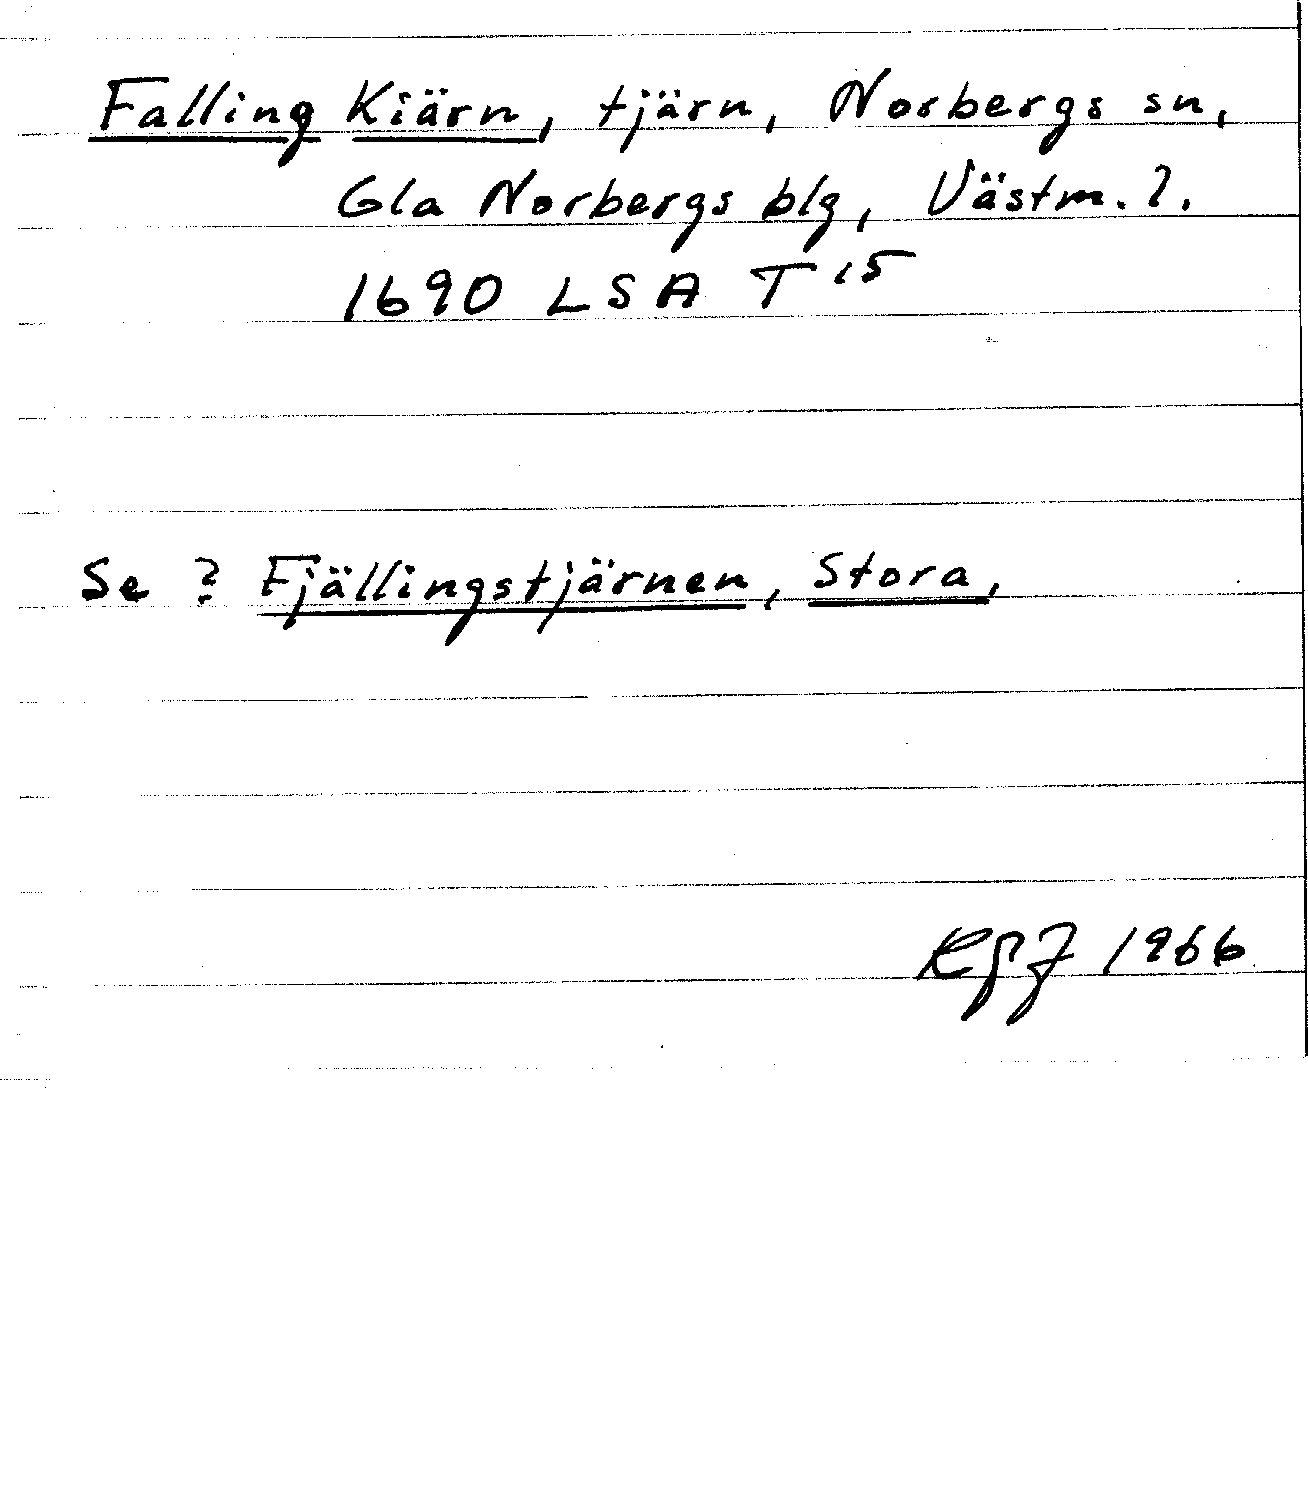 Falling Kiärn, tjärn, Norbergs sn,
Gla Norbergs blg, Västm. l.
1690 LSA T 15
Se ? Fjällingstjärnen, Stora,
1966